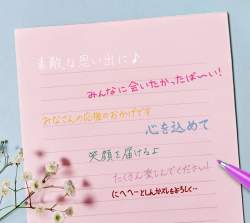 素敵な思い出に♪
みんなに会いたかったば〜い!
みなさんの応援のおかげです
心を込めて
笑顔を届けるよ
たくさん楽しんでください!
(にへへーとしんかズレもよろしく…